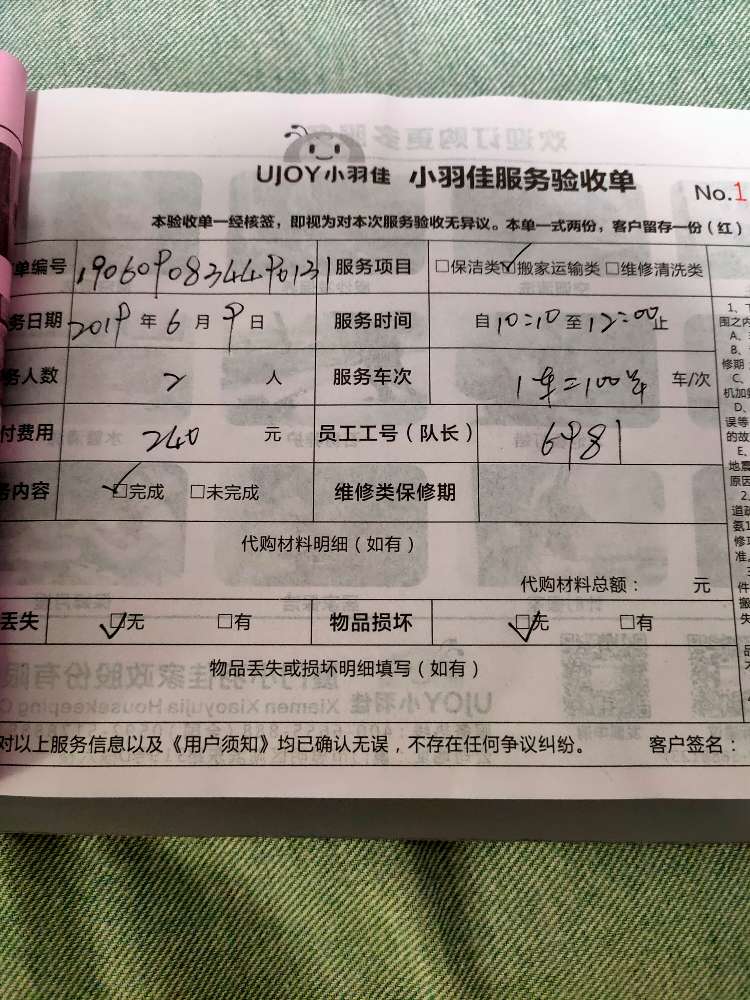 UJOY小羽佳 小羽佳服务验收单
No.1
本验收单一经核签，即视为对本次服务验收无异议。本单一式两份，客户留存一份（红）
单编号 1906090834490131 服务项目 □保洁类 ☑搬家运输类 □维修清洗类
务日期 2019 年 6 月 9 日 服务时间 自 10:10 至 12:00 止
务人数 2 人 服务车次 1车 车/次
付费用 240 元 员工工号（队长） 6981
务内容 ☑完成 □未完成 维修类保修期
代购材料明细（如有）
代购材料总额： 元
丢失 ☑无 □有 物品损坏 ☑无 □有
物品丢失或损坏明细填写（如有）
对以上服务信息以及《用户须知》均已确认无误，不存在任何争议纠纷。 客户签名：
1、
围之内
A、
B、
修期
C、
机加
D、
误等
的故
E、
地震
原因
2、
道疏
氨1
修项
准
件
搬
失